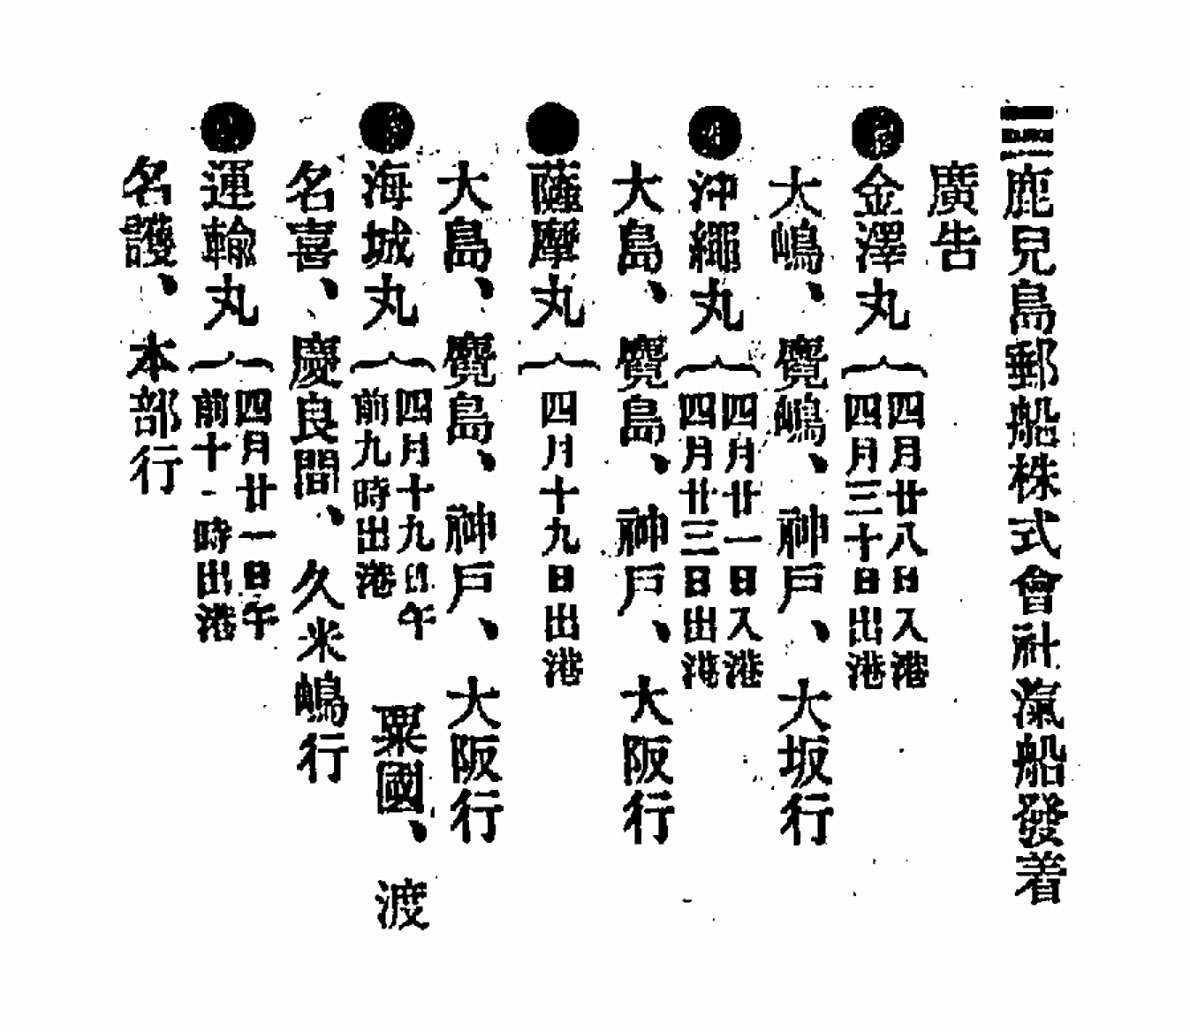 鹿兒島郵船株式會社滊船發着
廣告
●金澤丸
四月廿八日入港
四月三十日出港
大嶋、寶嶋、神戸、大坂行
●沖繩丸
四月廿一日入港
四月廿三日出港
大島、寶島、神戸、大阪行
●薩摩丸
四月十九日出港
大島、寶島、神戸、大阪行
●海城丸
四月十九日午
前九時出港
粟國、渡
名喜、慶良間、久米嶋行
●運輸丸
四月廿一日午
前十一時出港
名護、本部行